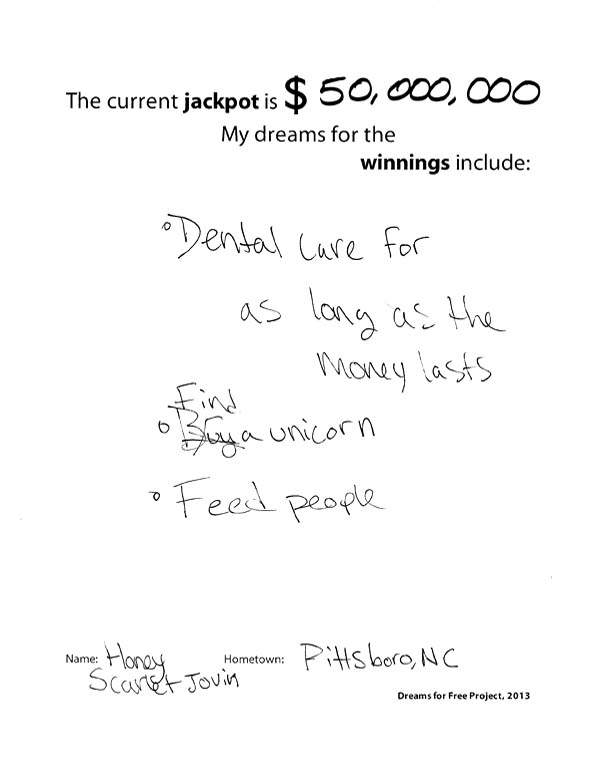 The current jackpot is $ 50,000,000
My dreams for the
winnings include:
° Dental care for
as long as the
money lasts
Find
° Buy a unicorn
° Feed people
Name: Honey Hometown: Pittsboro, NC
Scarlet Jovin
Dreams for Free Project, 2013